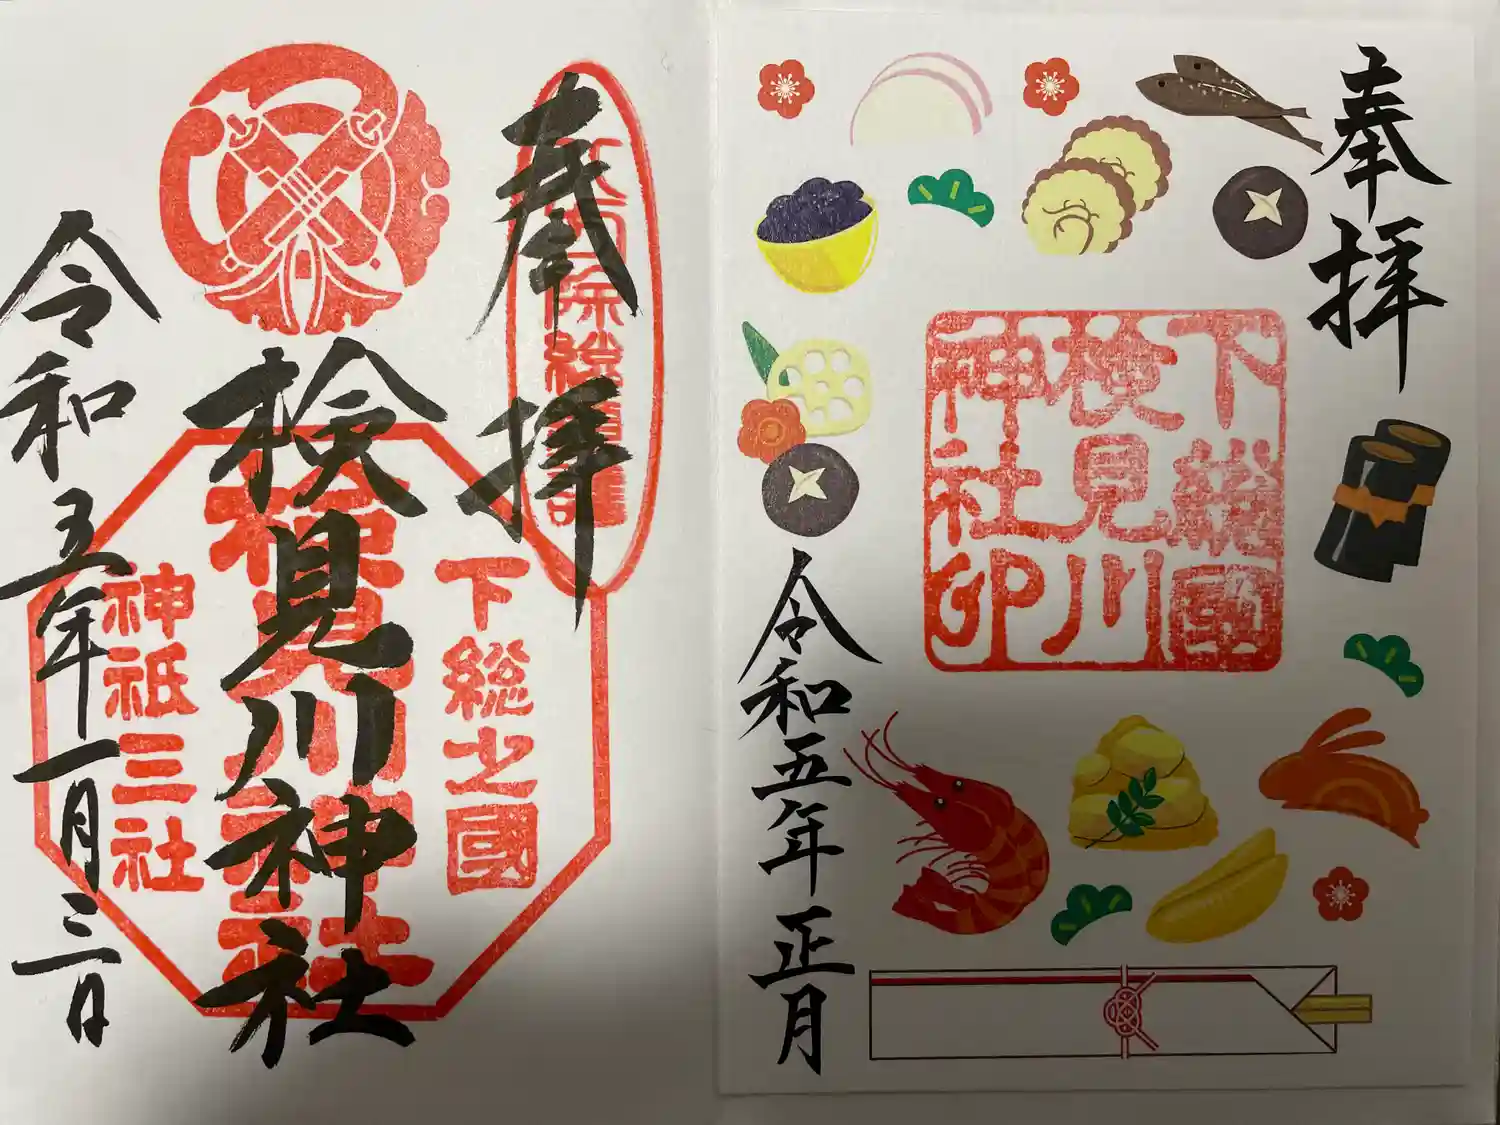 奉拝
検見川神社
令和五年一月三日
下総之國
検見川神社
神祇三社
奉拝
下総國
検見川
神社印
令和五年正月